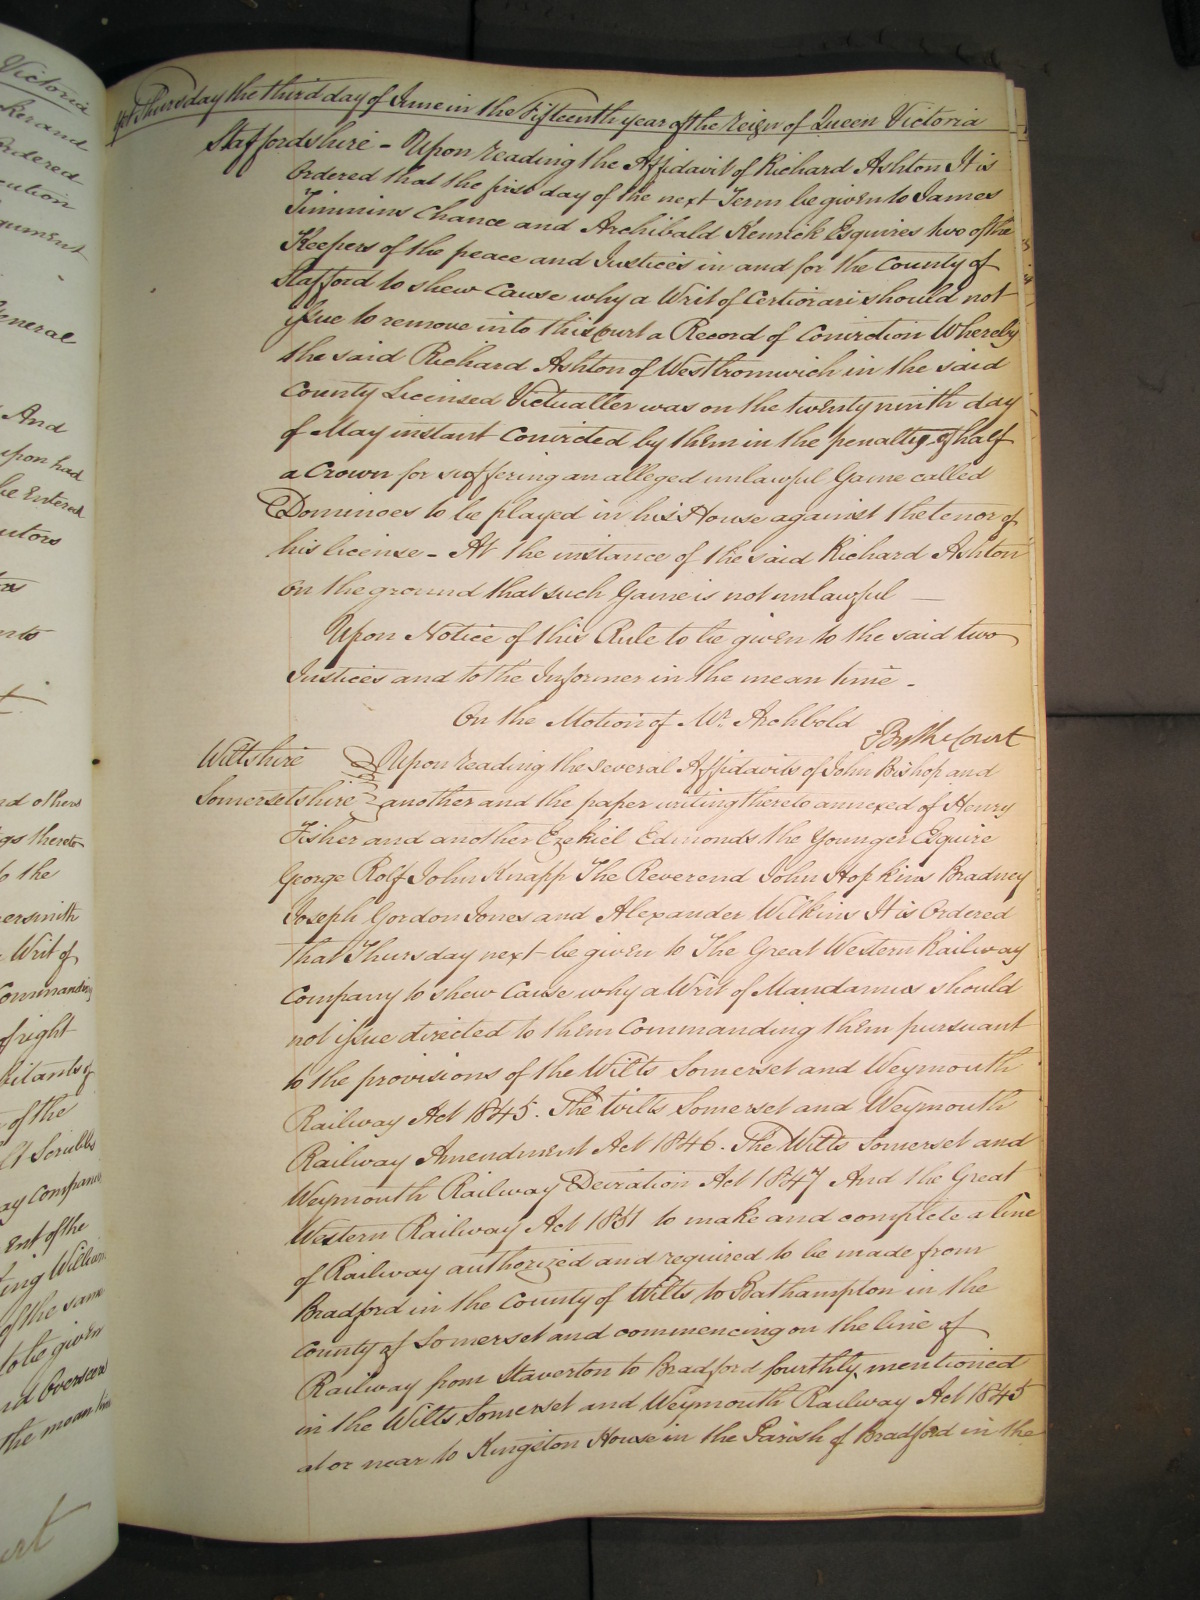 Yet Thursday the third day of June in the Fifteenth year of the Reign of Queen Victoria
Staffordshire - Upon reading the Affidavit of Richard Ashton It is
Ordered that the first day of the next Term be given to James
Timmins Chance and Archibald Kenrick Esquires two of the
Keepers of the peace and Justices in and for the County of
Stafford to shew Cause why a Writ of Certiorari should not
issue to remove into this Court a Record of Conviction Whereby
the said Richard Ashton of Westbromwich in the said
County Licensed Victualler was on the twenty ninth day
of May instant Convicted by them in the penalty of half
a Crown for suffering an alleged unlawful Game called
Dominoes to be played in his House against the tenor of
his license - At the instance of the said Richard Ashton
on the ground that such Game is not unlawful —
Upon Notice of this Rule to be given to the said two
Justices and to the Informer in the mean time -
On the Motion of Mr. Archbold
By the Court
Wiltshire Upon reading the several Affidavits of John Bishop and
Somersetshire another and the paper writing thereto annexed of Henry
Fisher and another Ezekiel Edmonds the Younger Esquire
George Rolf John Knapp The Reverend John Hopkins Bradney
Joseph Gordon Jones and Alexander Wilkins It is Ordered
that Thursday next be given to The Great Western Railway
Company to shew Cause why a Writ of Mandamus should
not issue directed to them Commanding them pursuant
to the provisions of the Wilts Somerset and Weymouth
Railway Act 1845. The Wilts Somerset and Weymouth
Railway Amendment Act 1846. The Wilts Somerset and
Weymouth Railway Deviation Act 1847 And the Great
Western Railway Act 1851 to make and complete a line
of Railway authorized and required to be made from
Bradford in the County of Wilts to Bathampton in the
County of Somerset and commencing on the line of
Railway from Staverton to Bradford fourthly mentioned
in the Wilts Somerset and Weymouth Railway Act 1845
at or near to Kingston House in the Parish of Bradford in the
Victoria
Ordered
General
And
upon had
be Entered
nd others
gs thereto
to the
Writ of
Commanding
of right
of the
ay Company
of the same
to be given